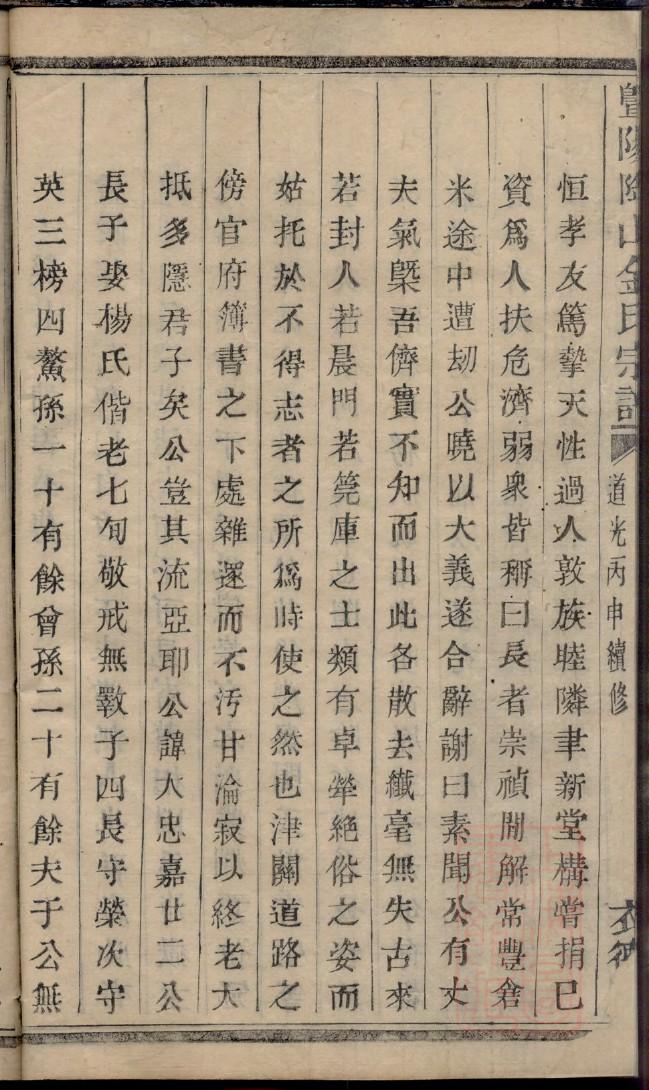 暨陽陶山金氏宗譜
道光丙申續修
恒孝友篤摯天性過人敦族睦隣聿新堂構嘗捐已
資爲人扶危濟弱衆皆稱曰長者崇禎閒解常豐倉
米途中遭刼公曉以大義遂合辭謝曰素聞公有丈
夫氣槩吾儕實不知而出此各散去纎毫無失古來
若封人若晨門若筦庫之士類有卓犖絶俗之姿而
姑托於不得志者之所爲時使之然也津關道路之
傍官府簿書之下處雜遝而不汚甘淪寂以終老大
抵多隱君子矣公豈其流亞耶公諱大忠嘉廿二公
長子娶楊氏偕老七旬敬戒無斁子四長守榮次守
英三榜四鰲孫一十有餘曾孫二十有餘夫于公無